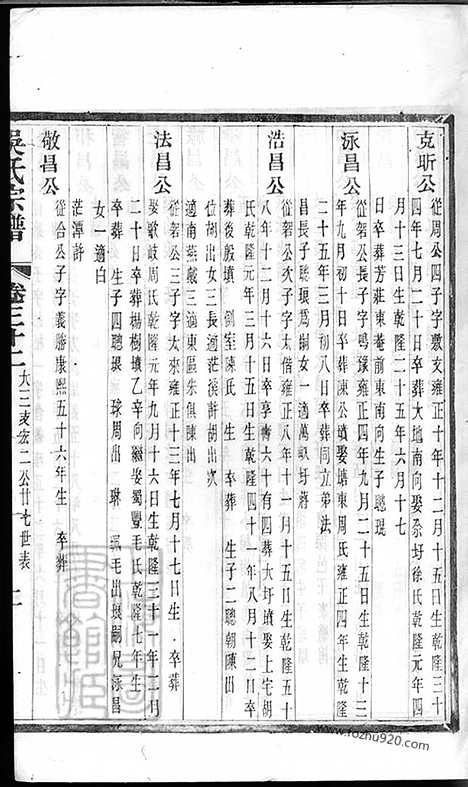 克昕公
從周公四子字敷支雍正十年十二月十五日生乾隆三十
四年七月二十日卒葬大地南向娶佘圩徐氏乾隆元年四
月十三日生乾隆二十五年六月十七
日卒葬芳莊東菴前東南向生子聰琨
泳昌公
從貂公長子字鳴豫雍正四年九月二十五日生乾隆十三
年九月初十日卒葬陳公墳娶塘東周氏雍正四年生乾隆
二十五年三月初八日卒葬同立弟法
昌長子聰琅為嗣女一適萬馭圩蔣
浩昌公
從貂公次子字太偕雍正八年十一月十五日生乾隆五十
八年十二月十六日卒享壽六十有四葬大圩墳娶上宅胡
氏乾隆元年三月十五日生乾隆四十一年八月十二日卒
葬後殷墳 側室陳氏 生 卒葬 生子二聰朝陳出
位胡出女三長適茫溪許胡出次
適南燕戴三適東區朱俱陳出
法昌公
從貂公三子字太來雍正十三年七月十七日生 卒葬
娶歌岐周氏乾隆元年九月十六日生乾隆三十一年二月
二十日卒葬楊樹墳乙辛向繼娶蜀豐毛氏乾隆七年生
卒葬 生子四聰琅 球周出 琳 珮毛出琅嗣兄泳昌
女一適白
茫潭許
敬昌公
從合公子字義勝康熙五十六年生 卒葬
吳氏宗譜
卷三十二
大二三房宏二公廿七世表
二
www.fozhu920.com